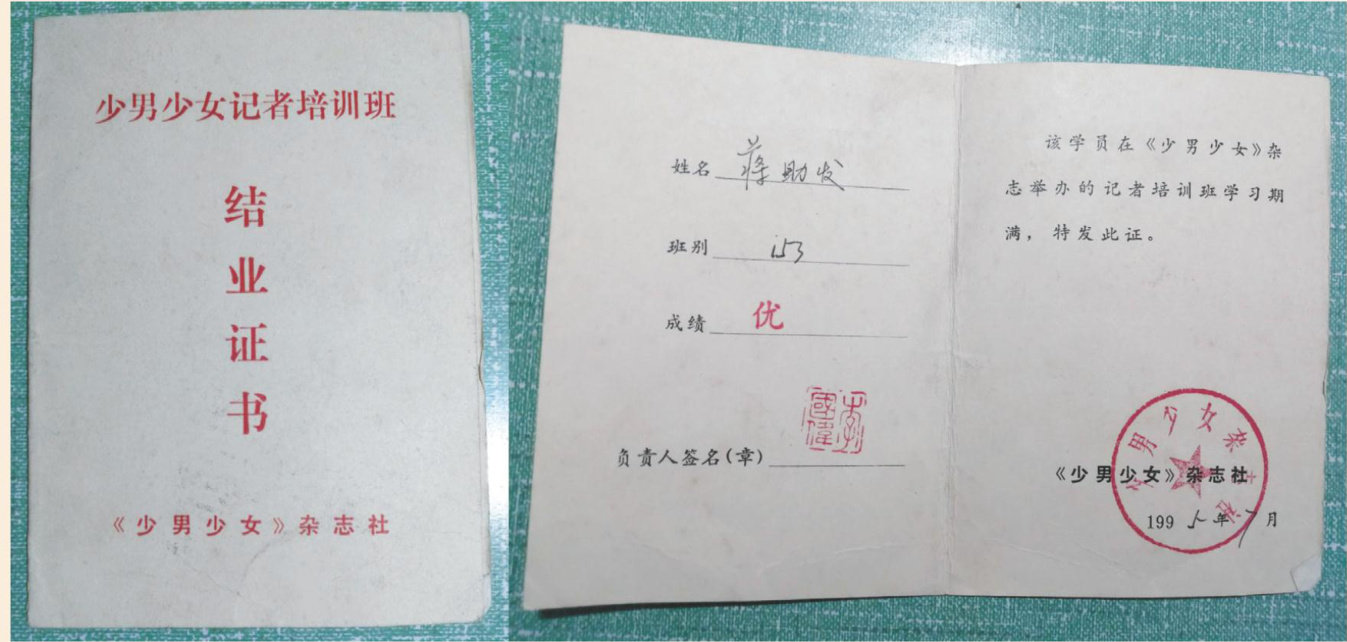 少男少女记者培训班
结
业
证
书
《少男少女》杂志社
姓名 蒋助发
班别 153
成绩 优
负责人签名(章)
该学员在《少男少女》杂
志举办的记者培训班学习期
满，特发此证。
少男少女杂志社
《少男少女》杂志社
199 年 月